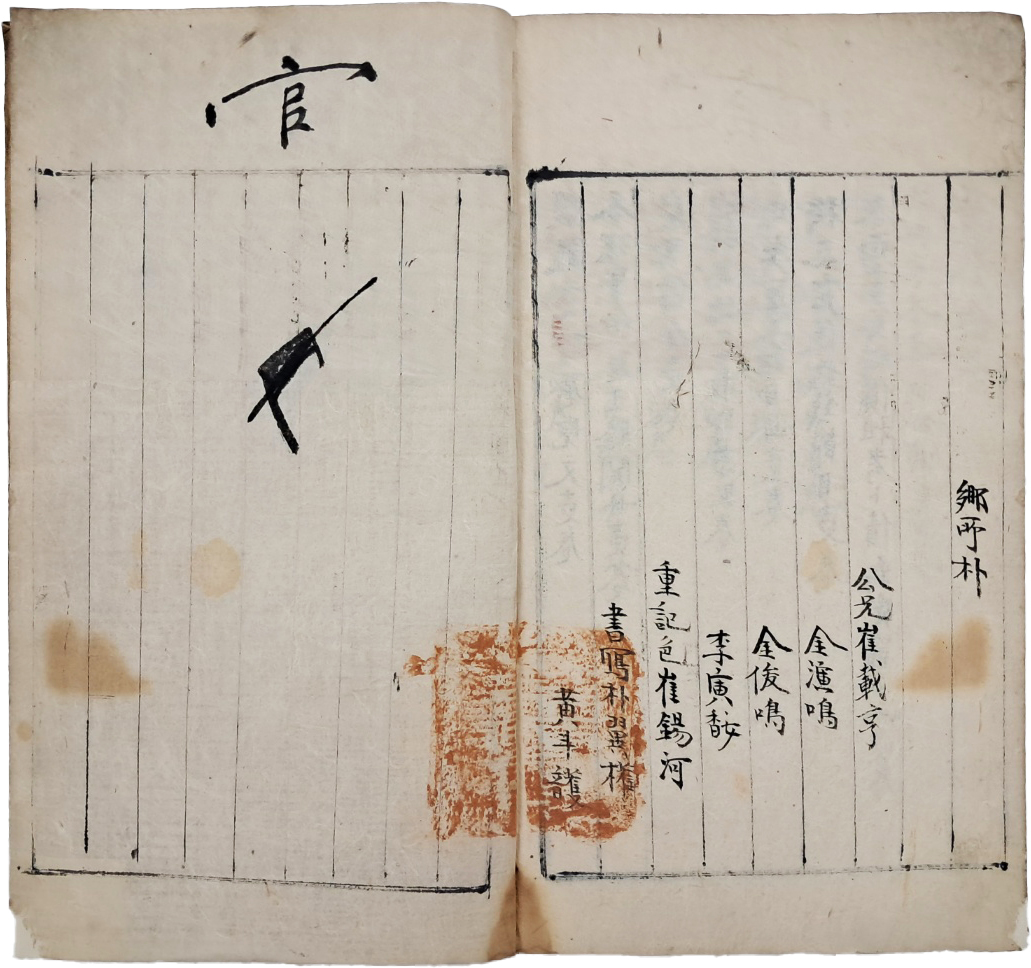 鄕所朴
公兄崔載亨
金漁鳴
金俊鳴
李寅馥
重記色崔錫河
書寫朴翼權
黃斗護
官